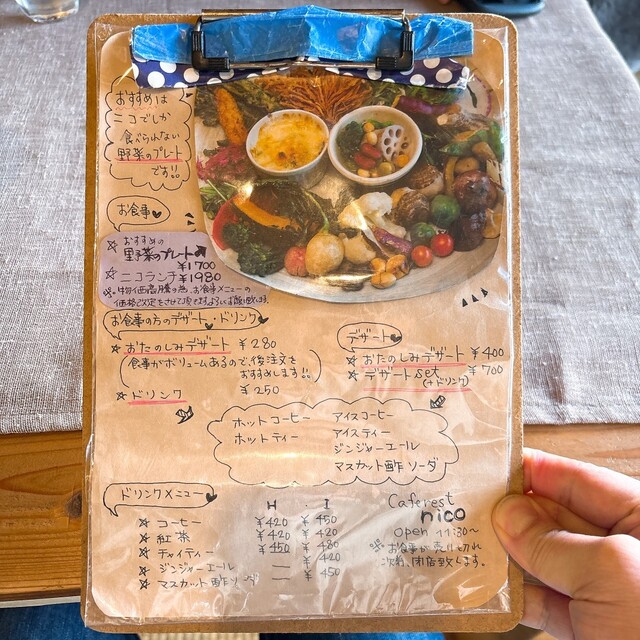 おすすめは
ニコでしか
食べられない
野菜のプレート
です!!
お食事
☆ おすすめの
野菜のプレート
¥1700
☆ ニコランチ ¥1980
物価高騰の為、お食事メニューの
価格改定をさせて頂きます。
お食事の方のデザート・ドリンク
☆ おたのしみデザート ¥280
(食事がボリュームあるので、後注文を
おすすめします!!)
☆ ドリンク ¥250
デザート
☆ おたのしみデザート ¥400
☆ デザートset ¥700
(+ドリンク)
ホットコーヒー アイスコーヒー
ホットティー アイスティー
ジンジャーエール
マスカット酢ソーダ
ドリンクメニュー
H I
☆ コーヒー ¥420 ¥450
☆ 紅茶 ¥420 ¥450
☆ チャイティー ¥450 ¥480
☆ ジンジャーエール — ¥420
☆ マスカット酢ソーダ — ¥450
Caferest
nico
open 11:30~
お食事が売り切れ
次第、閉店致します。